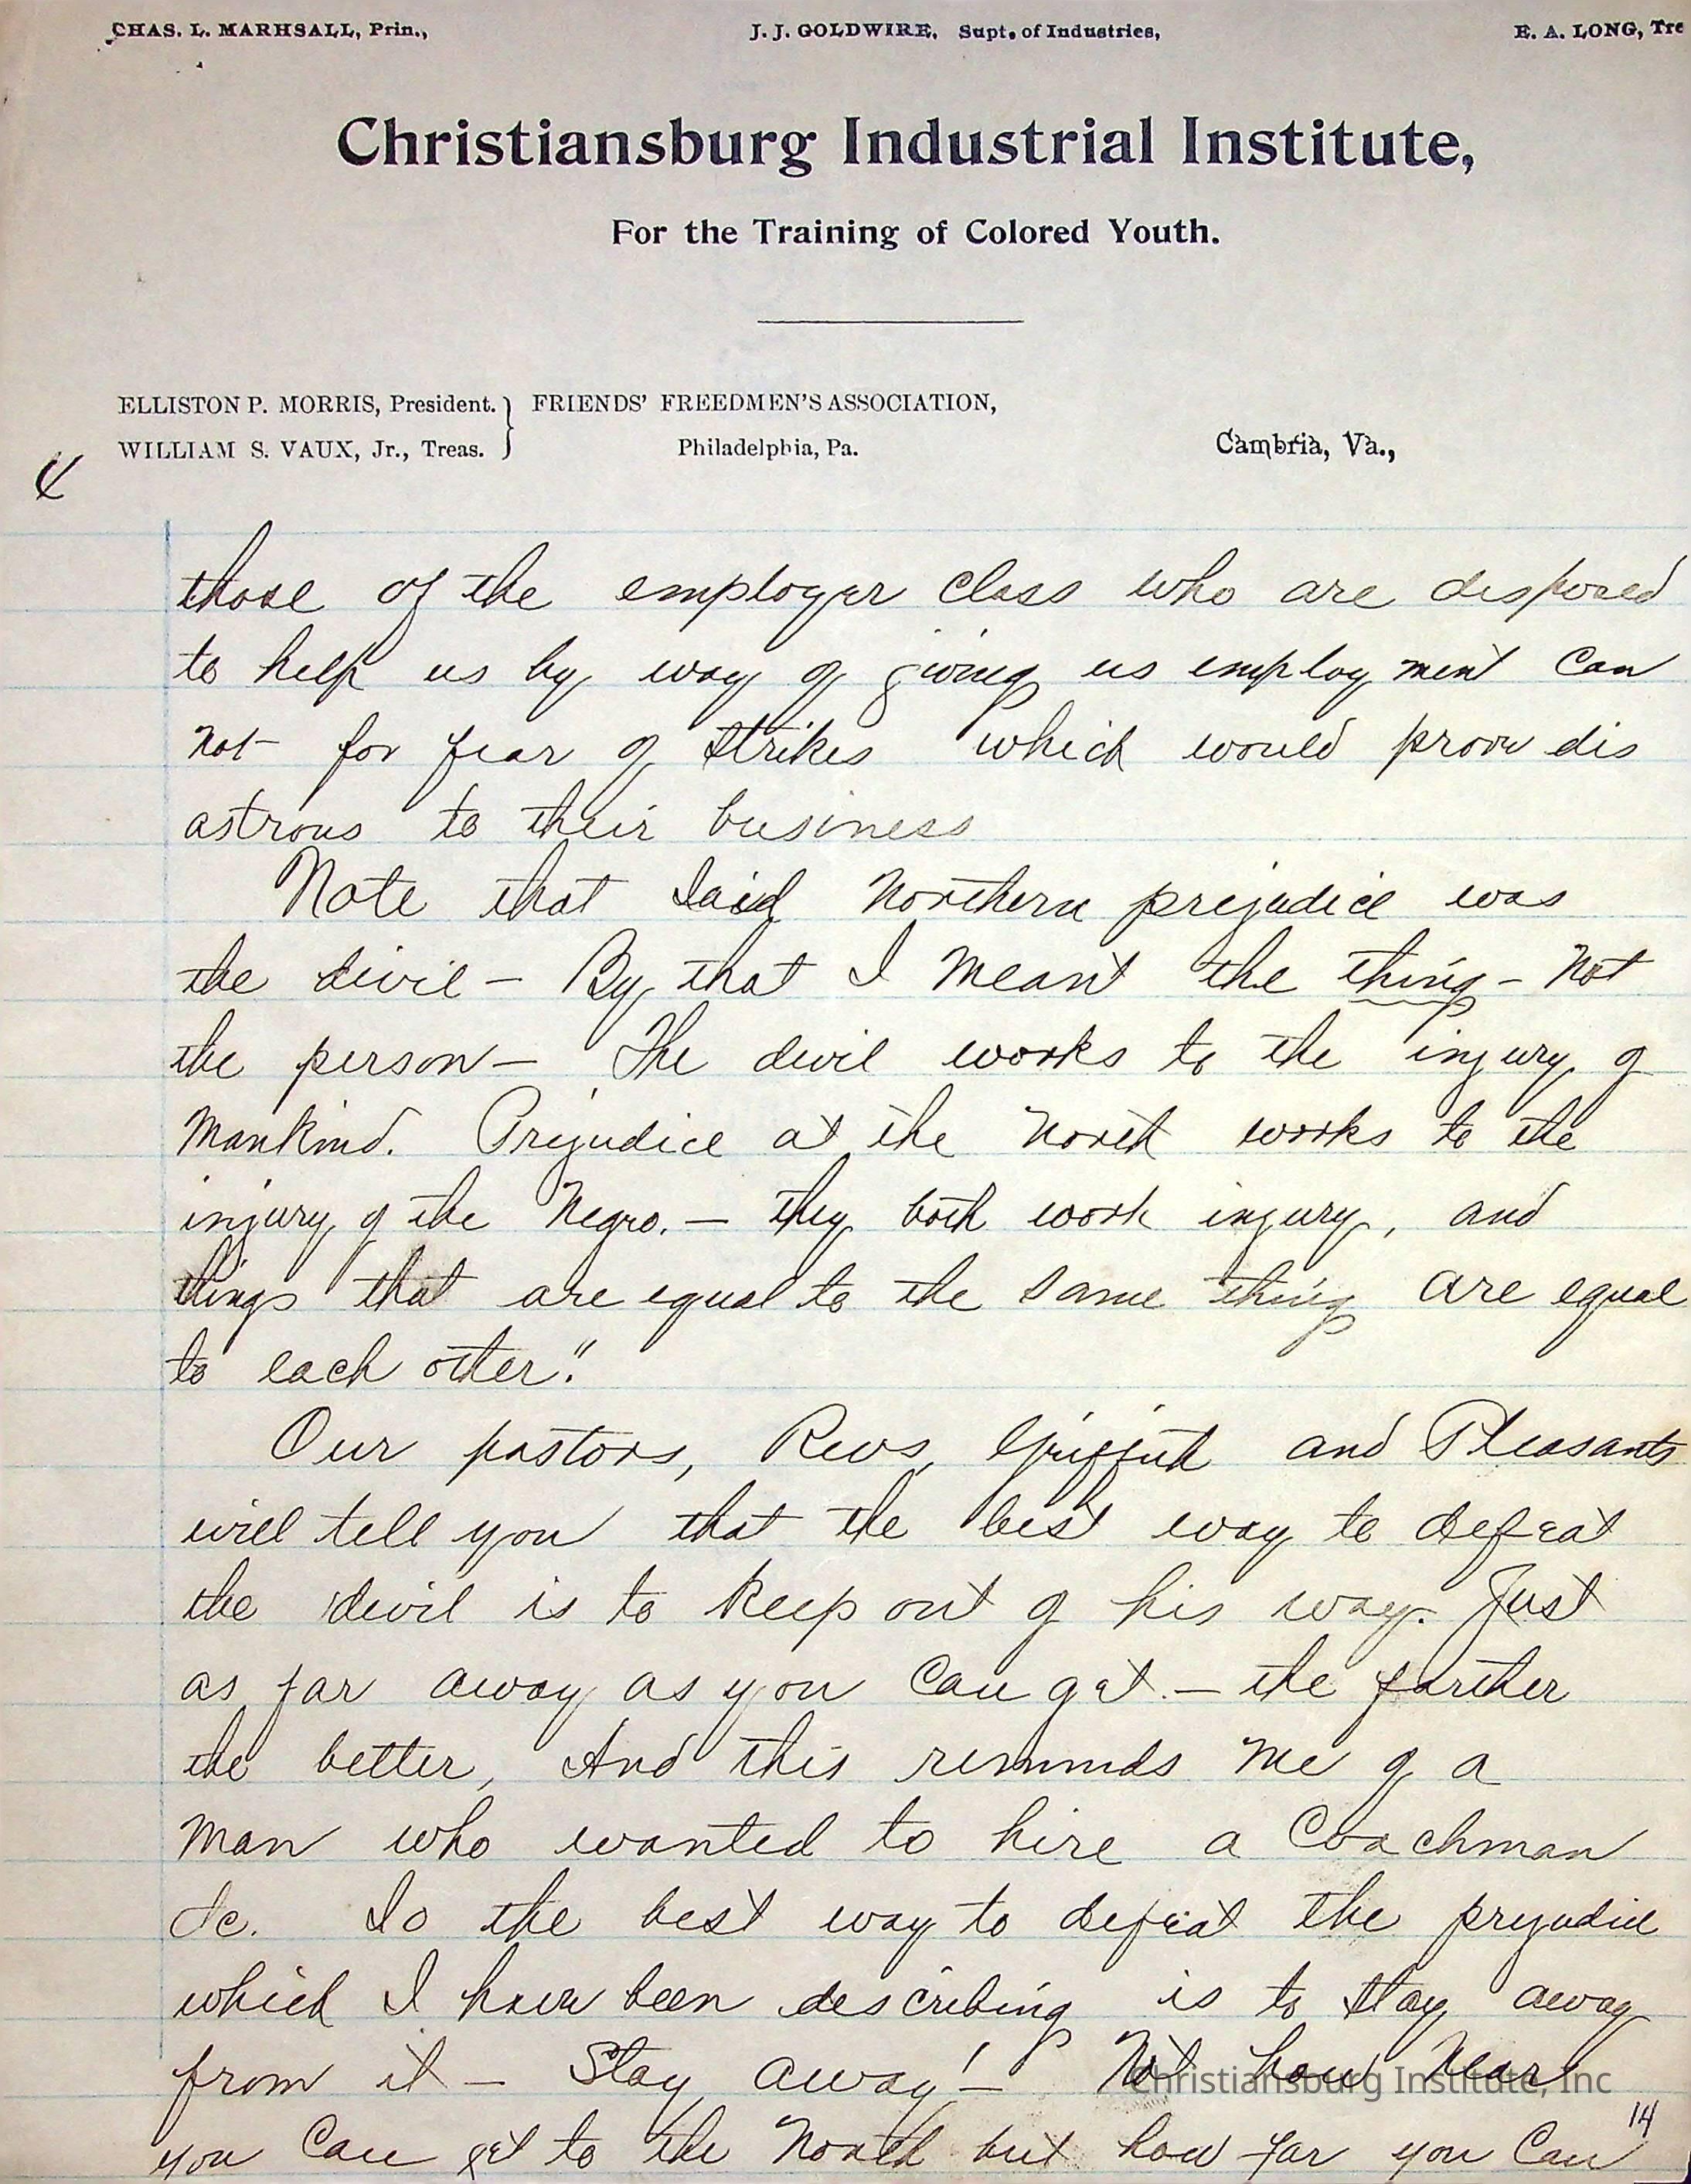 CHAS. L. MARHSALL, Prin.,
J. J. GOLDWIRE, Supt. of Industries,
E. A. LONG, Tre
Christiansburg Industrial Institute,
For the Training of Colored Youth.
ELLISTON P. MORRIS, President. } FRIENDS' FREEDMEN'S ASSOCIATION,
WILLIAM S. VAUX, Jr., Treas. Philadelphia, Pa.
Cambria, Va.,
those of the employer class who are disposed
to help us by way of giving us employ ment can
not for fear of strikes which would prove dis
astrous to their business
Note that I said Northern prejudice was
the devil — By that I meant the thing — not
the person — The devil works to the injury of
mankind. Prejudice at the North works to the
injury of the Negro. — they both work injury, and
things that are equal to the same thing are equal
to each other."
Our pastors, Revs, Griffith and Pleasants
will tell you that the best way to defeat
the devil is to keep out of his way. Just
as far away as you can get. — the farther
the better, And this reminds me of a
man who wanted to hire a Coachman
&c. So the best way to defeat the prejudice
which I have been describing is to stay away
from it — Stay away! — Not how near
Christiansburg Institute, Inc
14
you can get to the North but how far you can